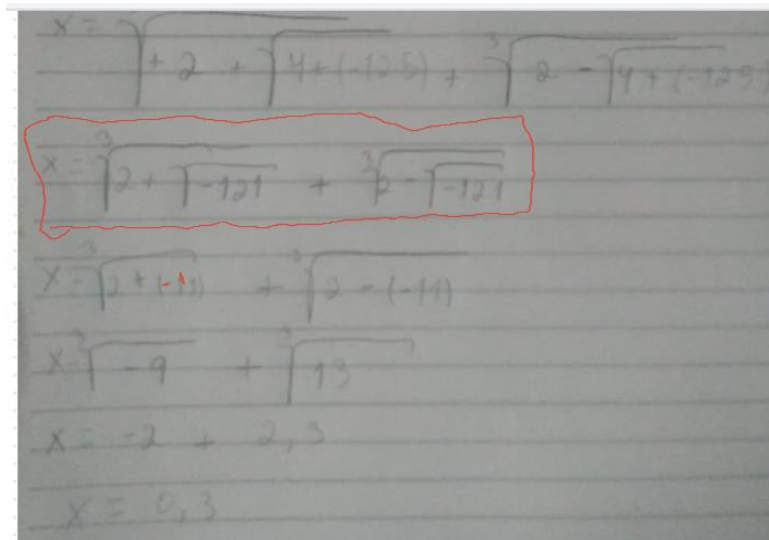 x = √(+ 2 + √(4 + (-125))) + ∛(2 - √(4 + (-125)))
x = ∛(2 + √(-121)) + ∛(2 - √(-121))
x = ∛(2 + (-11)) + ∛(2 - (-11))
x = ∛(-9) + ∛(13)
x = -2 + 2,3
x = 0,3